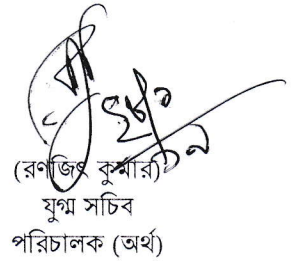 (রণজিৎ কুমার)
যুগ্ম সচিব
পরিচালক (অর্থ)